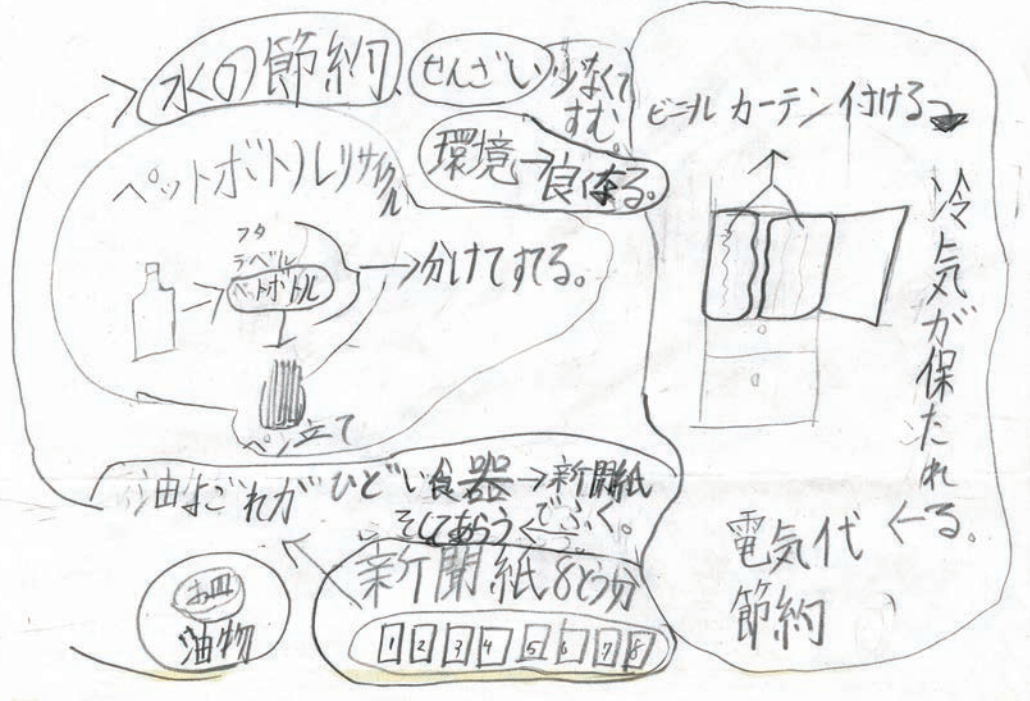 水の節約、
せんざい
少なくて
すむ。
環境→良体る。
ペットボトルリサイクル
フタ
ラベル
ペットボトル
→分けてすてる。
ペン立て
油よごれがひどい食器→新聞紙
でふく。
そしてあらう←
お皿
油物
新聞紙8とう分
1 2 3 4 5 6 7 8
ビニールカーテン付ける
冷気が保たれる。
電気代
節約